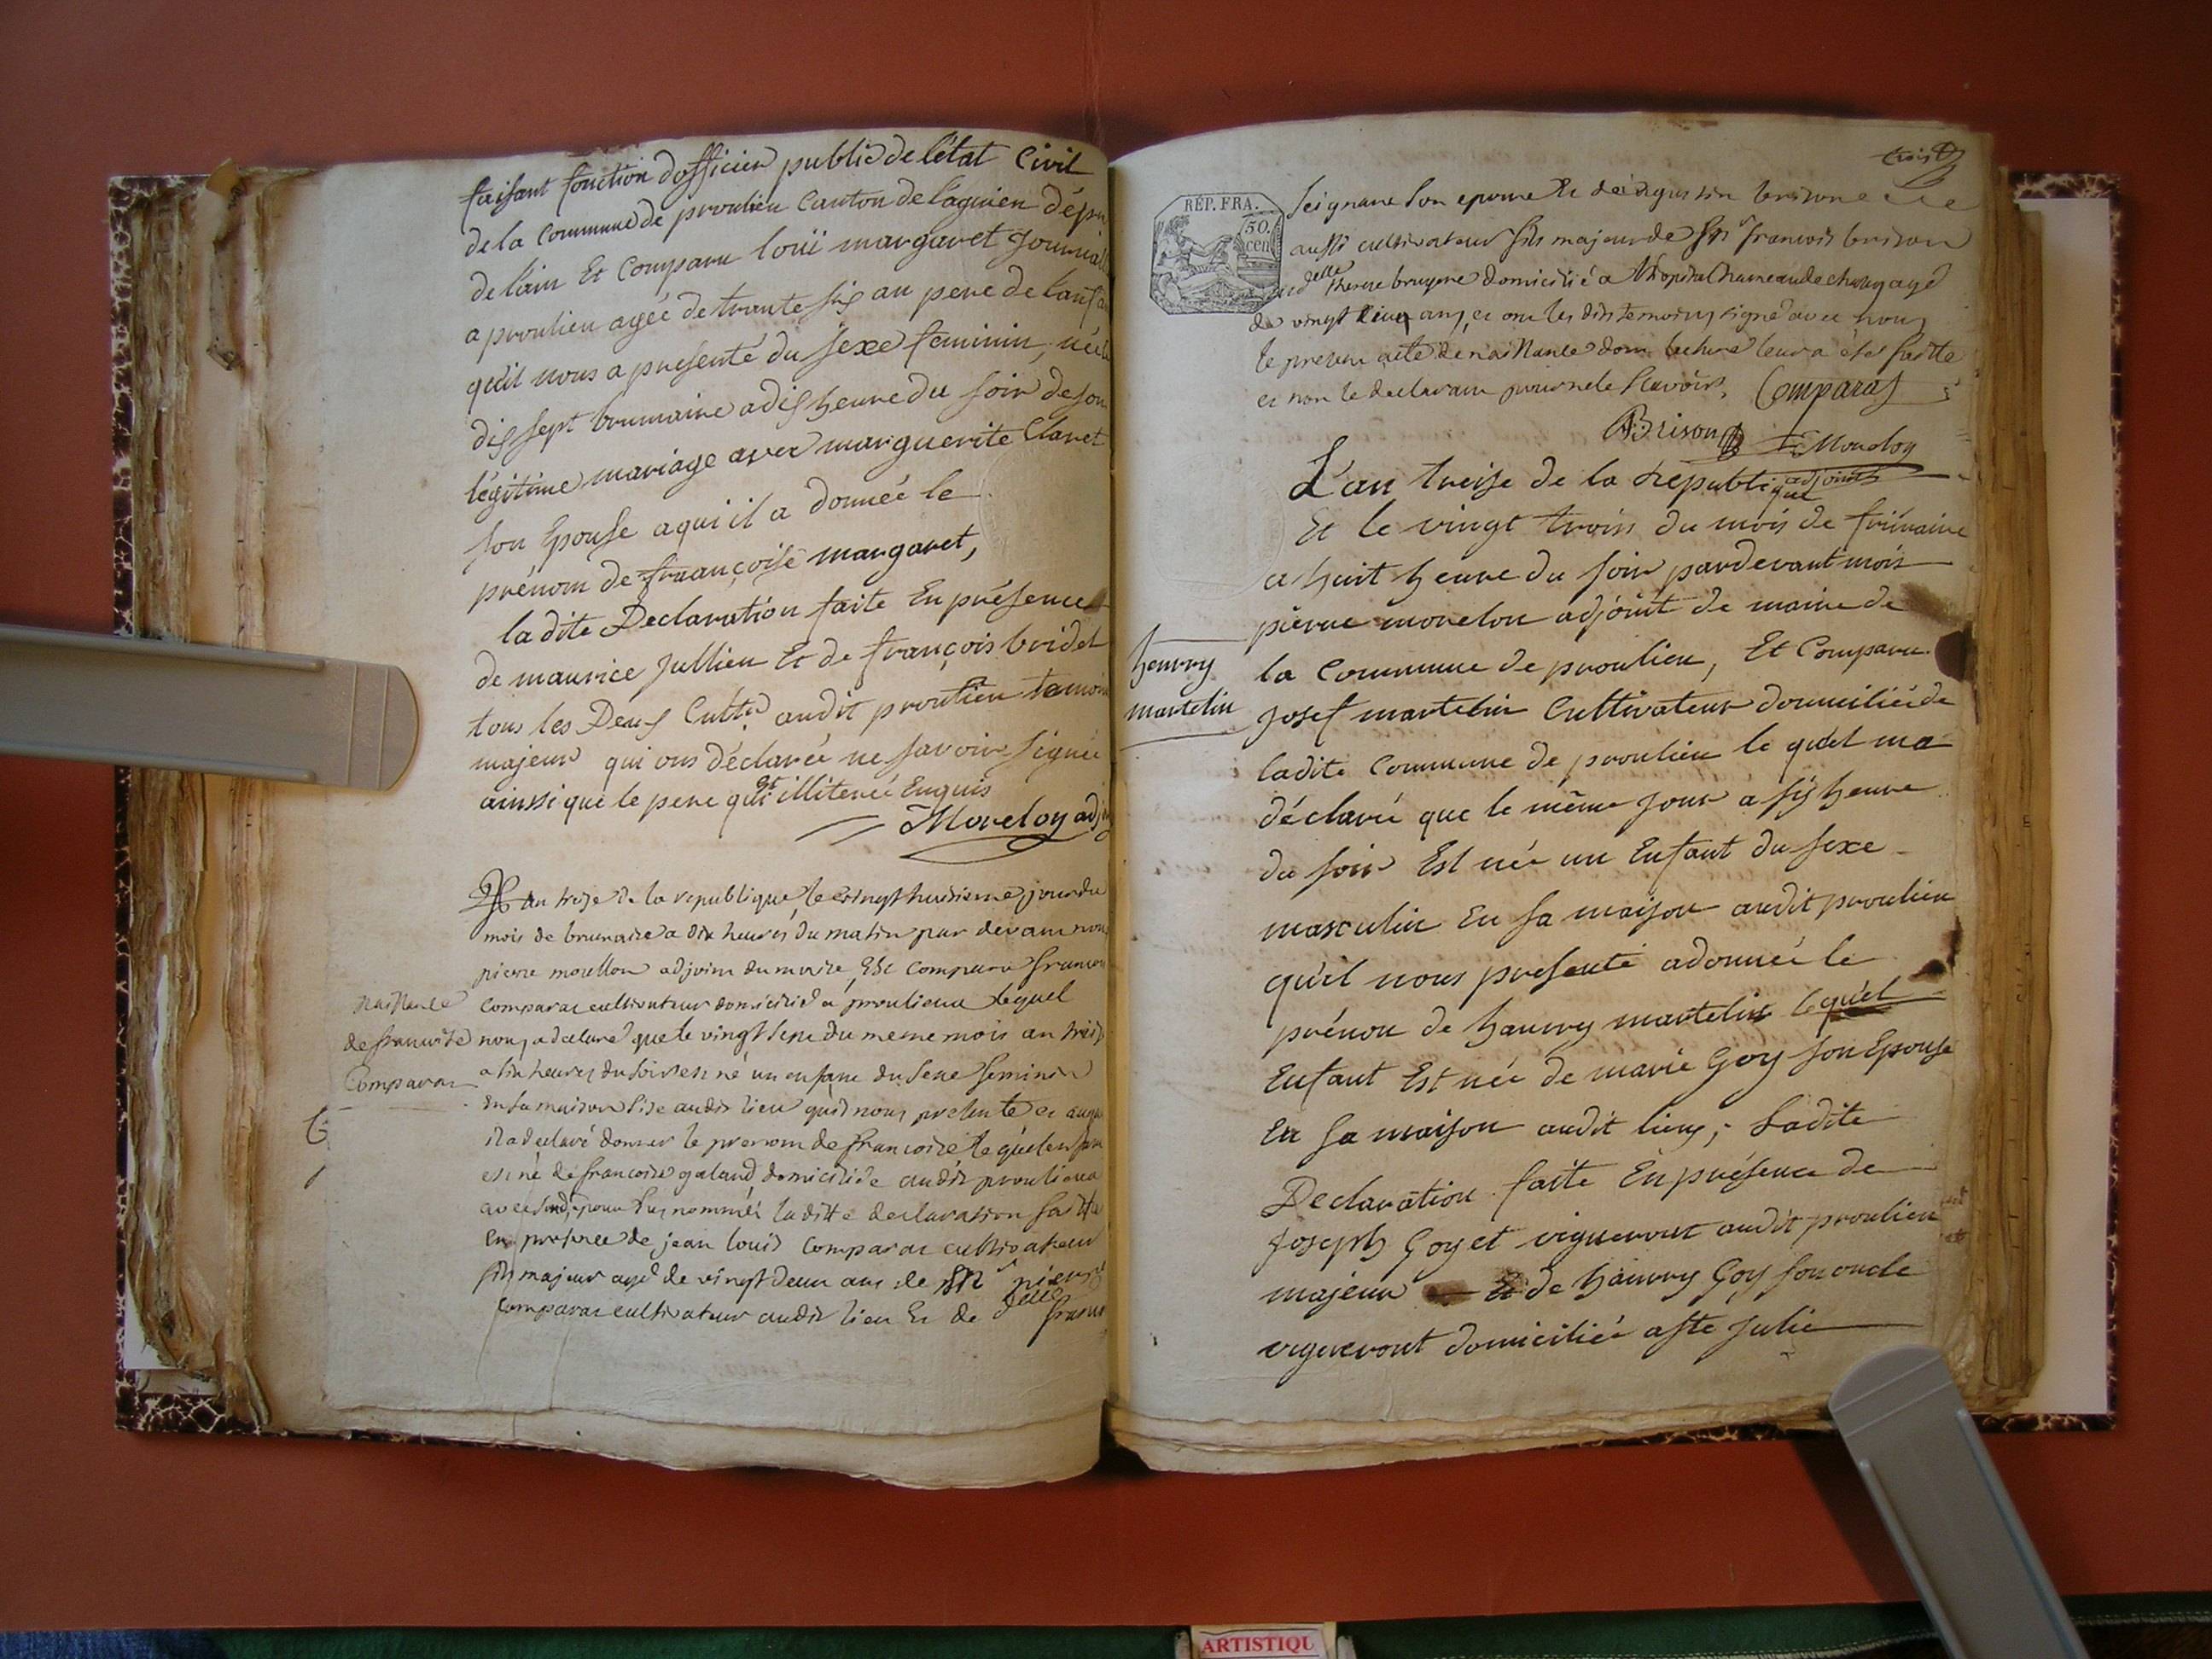 faisant fonction dofficier public de l'état Civil
de la Commune de proulieu Canton de lagnieu dépa
de lain Et Comparu louï margaret Journal
a proulieu agée de trante sis an pere de lanfa
qu'il nous a presenté du sexe feminin, née le
dis sept brumaire a dis heure du soir de son
légitime mariage avec marguerite Claret
son Epouse a qui il a donnée le
prénom de françoise margaret,
la dite Declaration faite En présence
de maurice Jullien Et de françois bridet
tous les Deus Cultr audit proulieu temoin
majeur qui ons déclarée ne savoir signée
ainssi que le pere qui Et illiterée Enquis
Morelon adj
L'an treze de la republique, le vingt huitieme jour du
mois de brumaire a dix heures du matin par devant nous
pierre morellon adjoint du maire, Est comparu francois
Naissance
de francoise
Comparat
comparat cultivateur domicilié a proulieu lequel
nous a declaré que le vingt sept du meme mois an treiz
a six heures du soir est né un enfant du sexe feminin
en sa maison size audit lieu quil nous presente et auqu
il a declaré donner le prenom de francoise lequel enfan
est né de francoise galand domiciliée audit proulieu
avec son epoux sus nommé, la ditte declaration faitte
en presence de jean louis comparat cultivateur
fils majeur agé de vingt deux ans de Sr pierre
comparat cultivateur audit lieu Et de delle
RÉP. FRA.
50.
cen
son epouse Et de augustin brison
aussi cultivateur fils majeur de Sr francois brison
delle therese bruyere domicilié a
de vingt cinq ans, et ont les dits temoins signé avec nous
le present acte de naissance dont lecture leur a été faitte
et non le declarant pour ne le scavoir, Comparat
Brison Morelon
adjoint
L'an treise de la republique
Et le vingt trois du mois de frimaire
a huit heure du soir pardevant mois
pierre morelon adjoint de maire de
henrry
martelin
la Commune de proulieu, Et Comparu
Josef martelin Cultivateur domiciliée de
ladite Commune de proulieu le quel ma
déclaré que le même jour a sis heure
du soir Est née un Enfant du sexe
masculin En sa maison audit proulieu
qu'il nous presenté a donnée le
prénon de haenrry martelin lequ'el
Enfant Est née de marie Goy son Epouse
En sa maison audit lieux; Ladite
Declaration faite En présence de
Joseph Goyet vigneront audit proulieu
majeur Et de haenrry Goy son oncle
vigneront domiciliée a ste Julie
ARTISTIQU